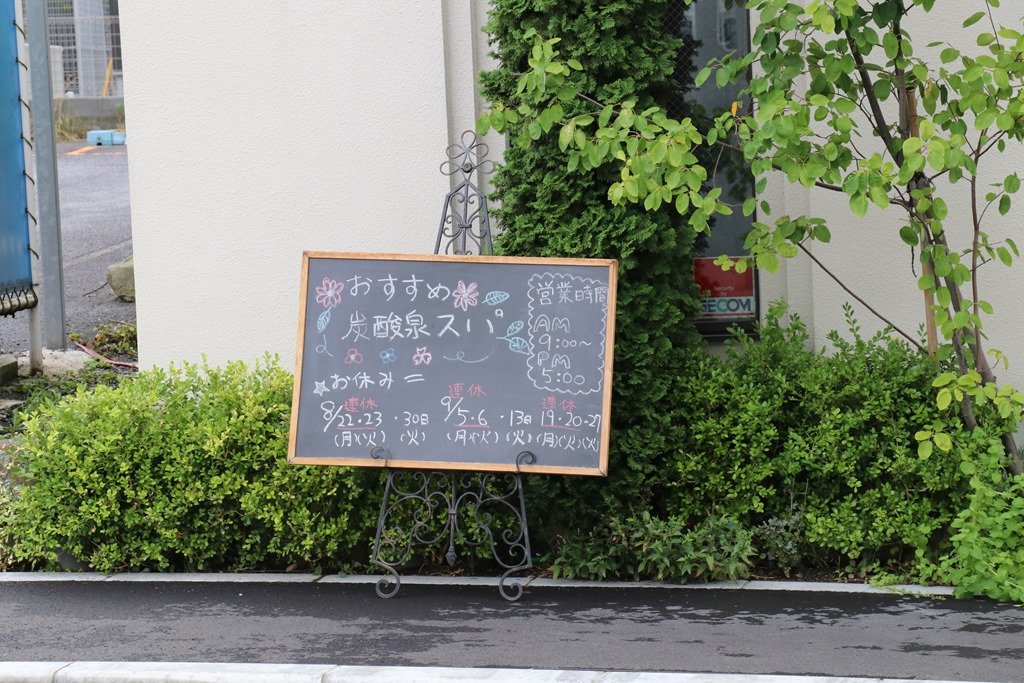 おすすめ
炭酸泉スパ
営業時間
AM
9:00〜
PM
5:00
☆お休み=
連休 連休 連休
8/22・23・30日 9/5・6・13日 19・20・27
(月)(火) (火) (月)(火) (火) (月)(火)(火)
Security
by
SECOM